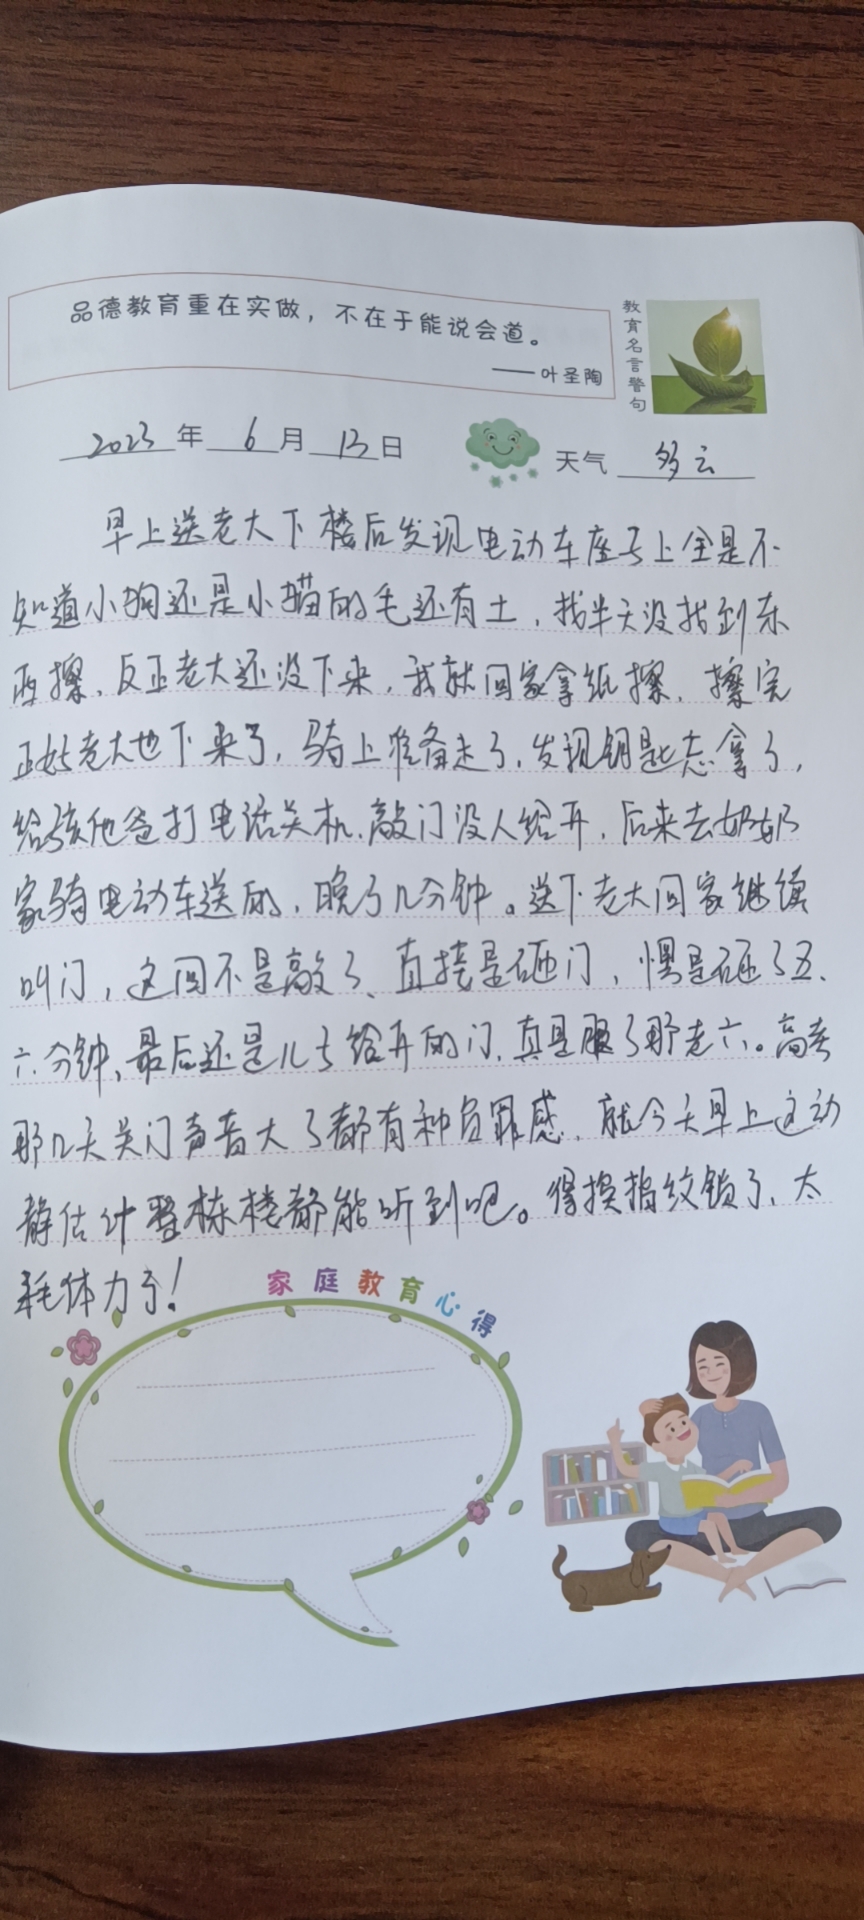 品德教育重在实做，不在于能说会道。
——叶圣陶
教育名言警句
2023年6月13日 天气 多云
早上送老大下楼后发现电动车座子上全是不
知道小狗还是小猫的毛还有土，找半天没找到东
西擦，反正老大还没下来，我就回家拿纸擦，擦完
正好老大也下来了，骑上准备走了，发现钥匙忘拿了，
给孩他爸打电话关机，敲门没人给开，后来去奶奶
家骑电动车送的，晚了几分钟。送下老大回家继续
叫门，这回不是敲了、直接是砸门，愣是砸了五、
六分钟、最后还是儿子给开的门，真是服了那老六。高考
那几天关门声音大了都有种负罪感，就今天早上这动
静估计整栋楼都能听到吧。得换指纹锁了、太
耗体力了！
家庭教育心得